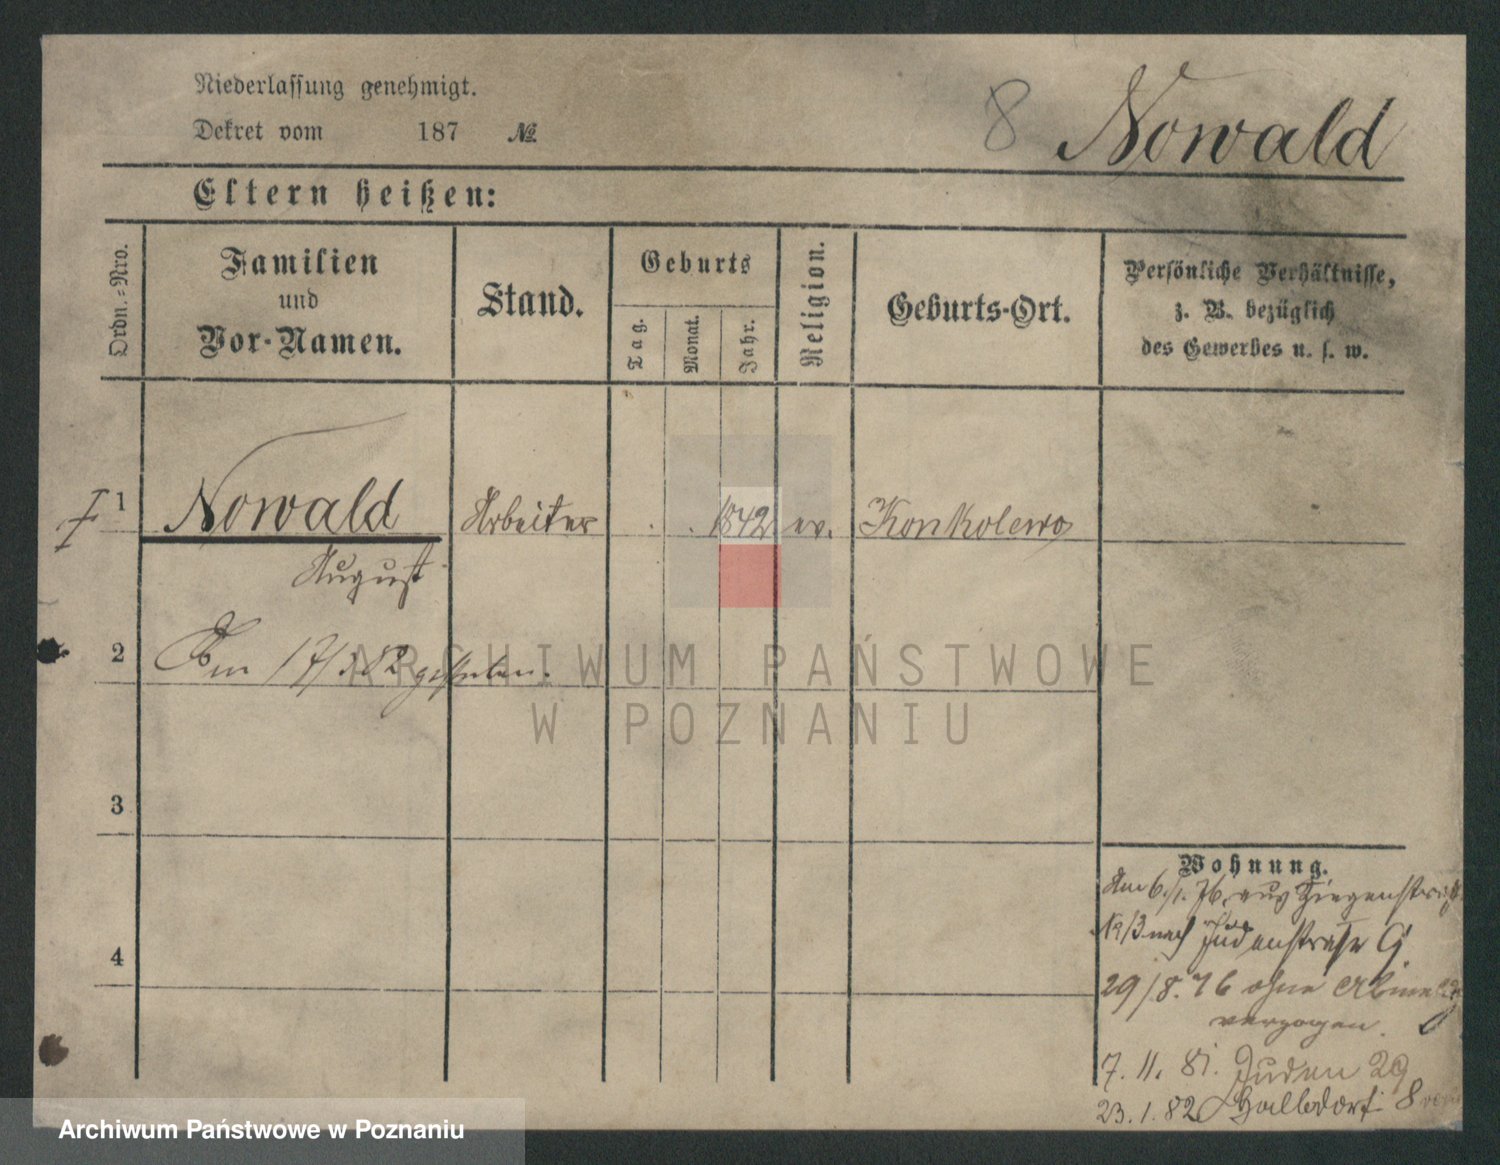 Niederlassung genehmigt.
Dekret vom 187 No
8 Nowald
Eltern heißen:
Ordn.-Nro.
Familien
und
Vor-Namen.
Stand.
Geburts
Tag.
Monat.
Jahr.
Religion.
Geburts-Ort.
Persönliche Verhältnisse,
z. B. bezüglich
des Gewerbes u. s. w.
1 Nowald Arbeiter . . 1842 ev. Konkolewo
August
2 Am 17/3 82 gestorben.
3
4
Wohnung.
Am 6./1. 76. aus Ziegenstraße
nach Judenstraße 9.
29/8. 76 ohne
verzogen.
7. 11. 81. Juden 29
23. 1. 82 Halbdorf 8
ARCHIWUM PAŃSTWOWE
W POZNANIU
Archiwum Państwowe w Poznaniu